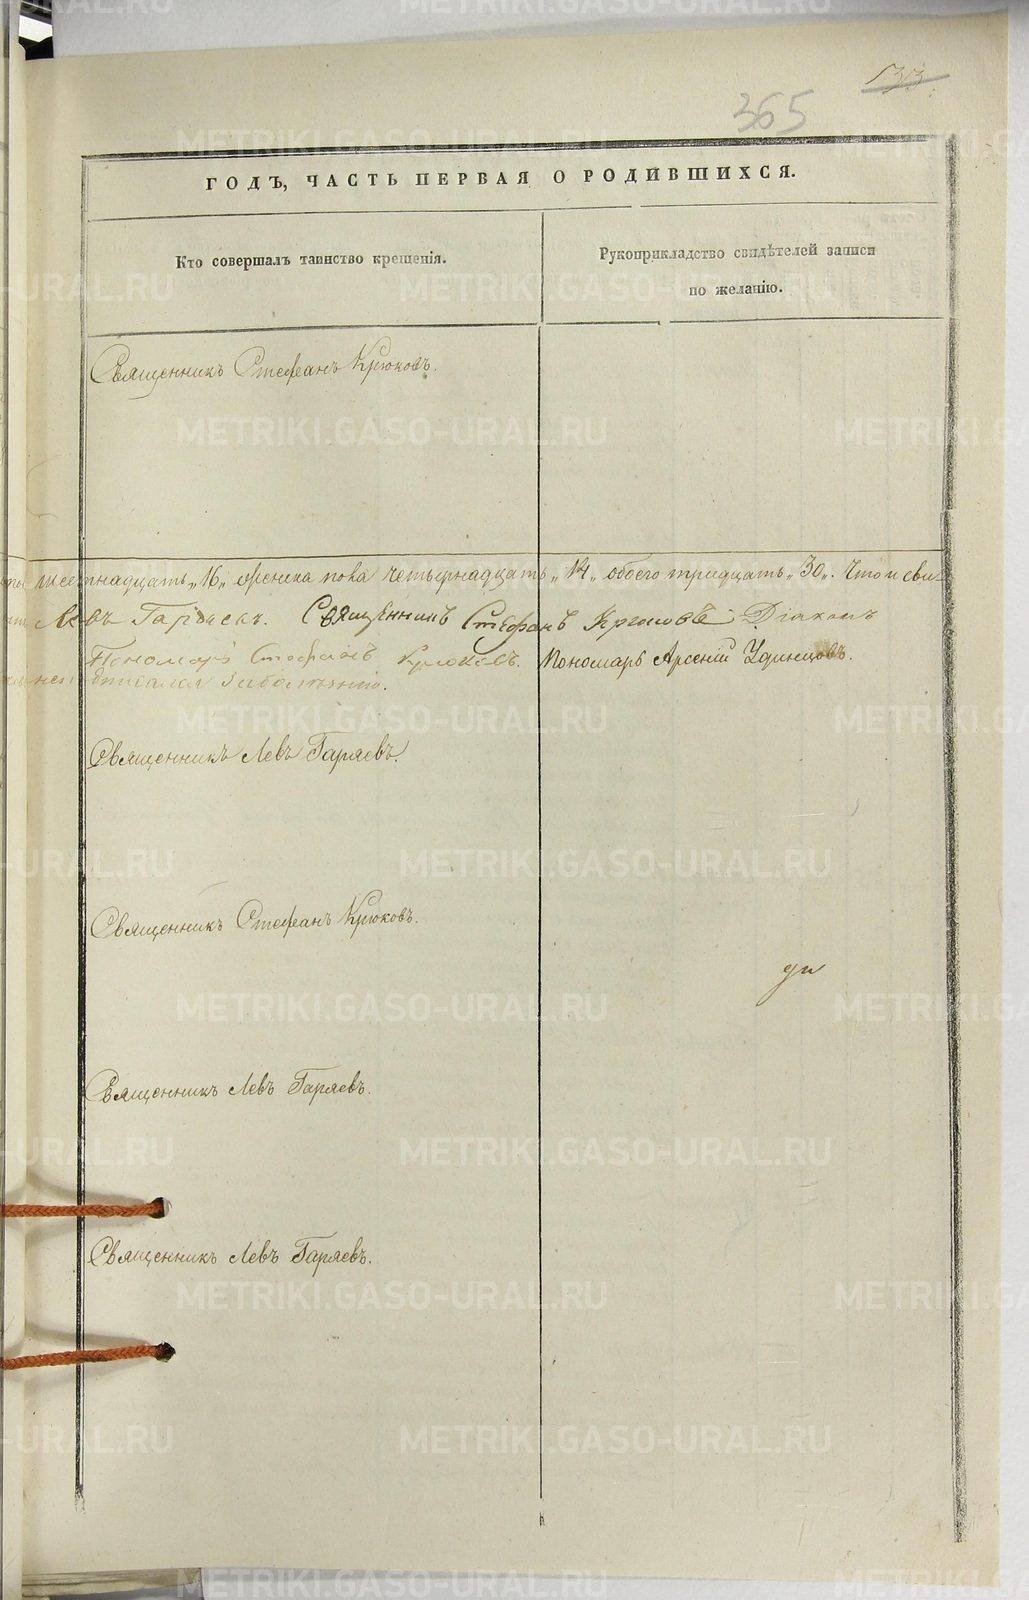 133
365
ГОДЪ, ЧАСТЬ ПЕРВАЯ О РОДИВШИХСЯ.
Кто совершалъ таинство крещенія.
Рукоприкладство свидѣтелей записи
по желанію.
Священникъ Стефанъ Крюковъ.
шестнадцать „16„ женска пола четырнадцать „14„ обоего тридцать „30„. Что и сви
Левъ Гаряевъ. Священникъ Стефанъ Крюковъ Діаконъ
Пономарь Стефанъ Крюковъ. Пономарь Арсеній Удинцовъ.
Священникъ Левъ Гаряевъ.
Священникъ Стефанъ Крюковъ.
Священникъ Левъ Гаряевъ.
Священникъ Левъ Гаряевъ.
METRIKI.GASO-URAL.RU